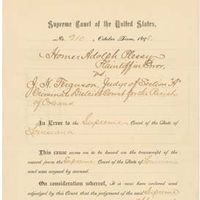 Supreme Court of the United States,
No. 210, October Term, 1895.
Homer Adolph Plessy
Plaintiff in Error,
vs.
J. H. Ferguson, Judge of Section "A"
Criminal District Court for the Parish
of Orleans
In Error to the Supreme Court of the State of
Louisiana
This cause came on to be heard on the transcript of the
record from the Supreme Court of the State of Louisiana
and was argued by counsel.
On consideration whereof, It is now here ordered and
adjudged by this Court that the judgment of the said Supreme